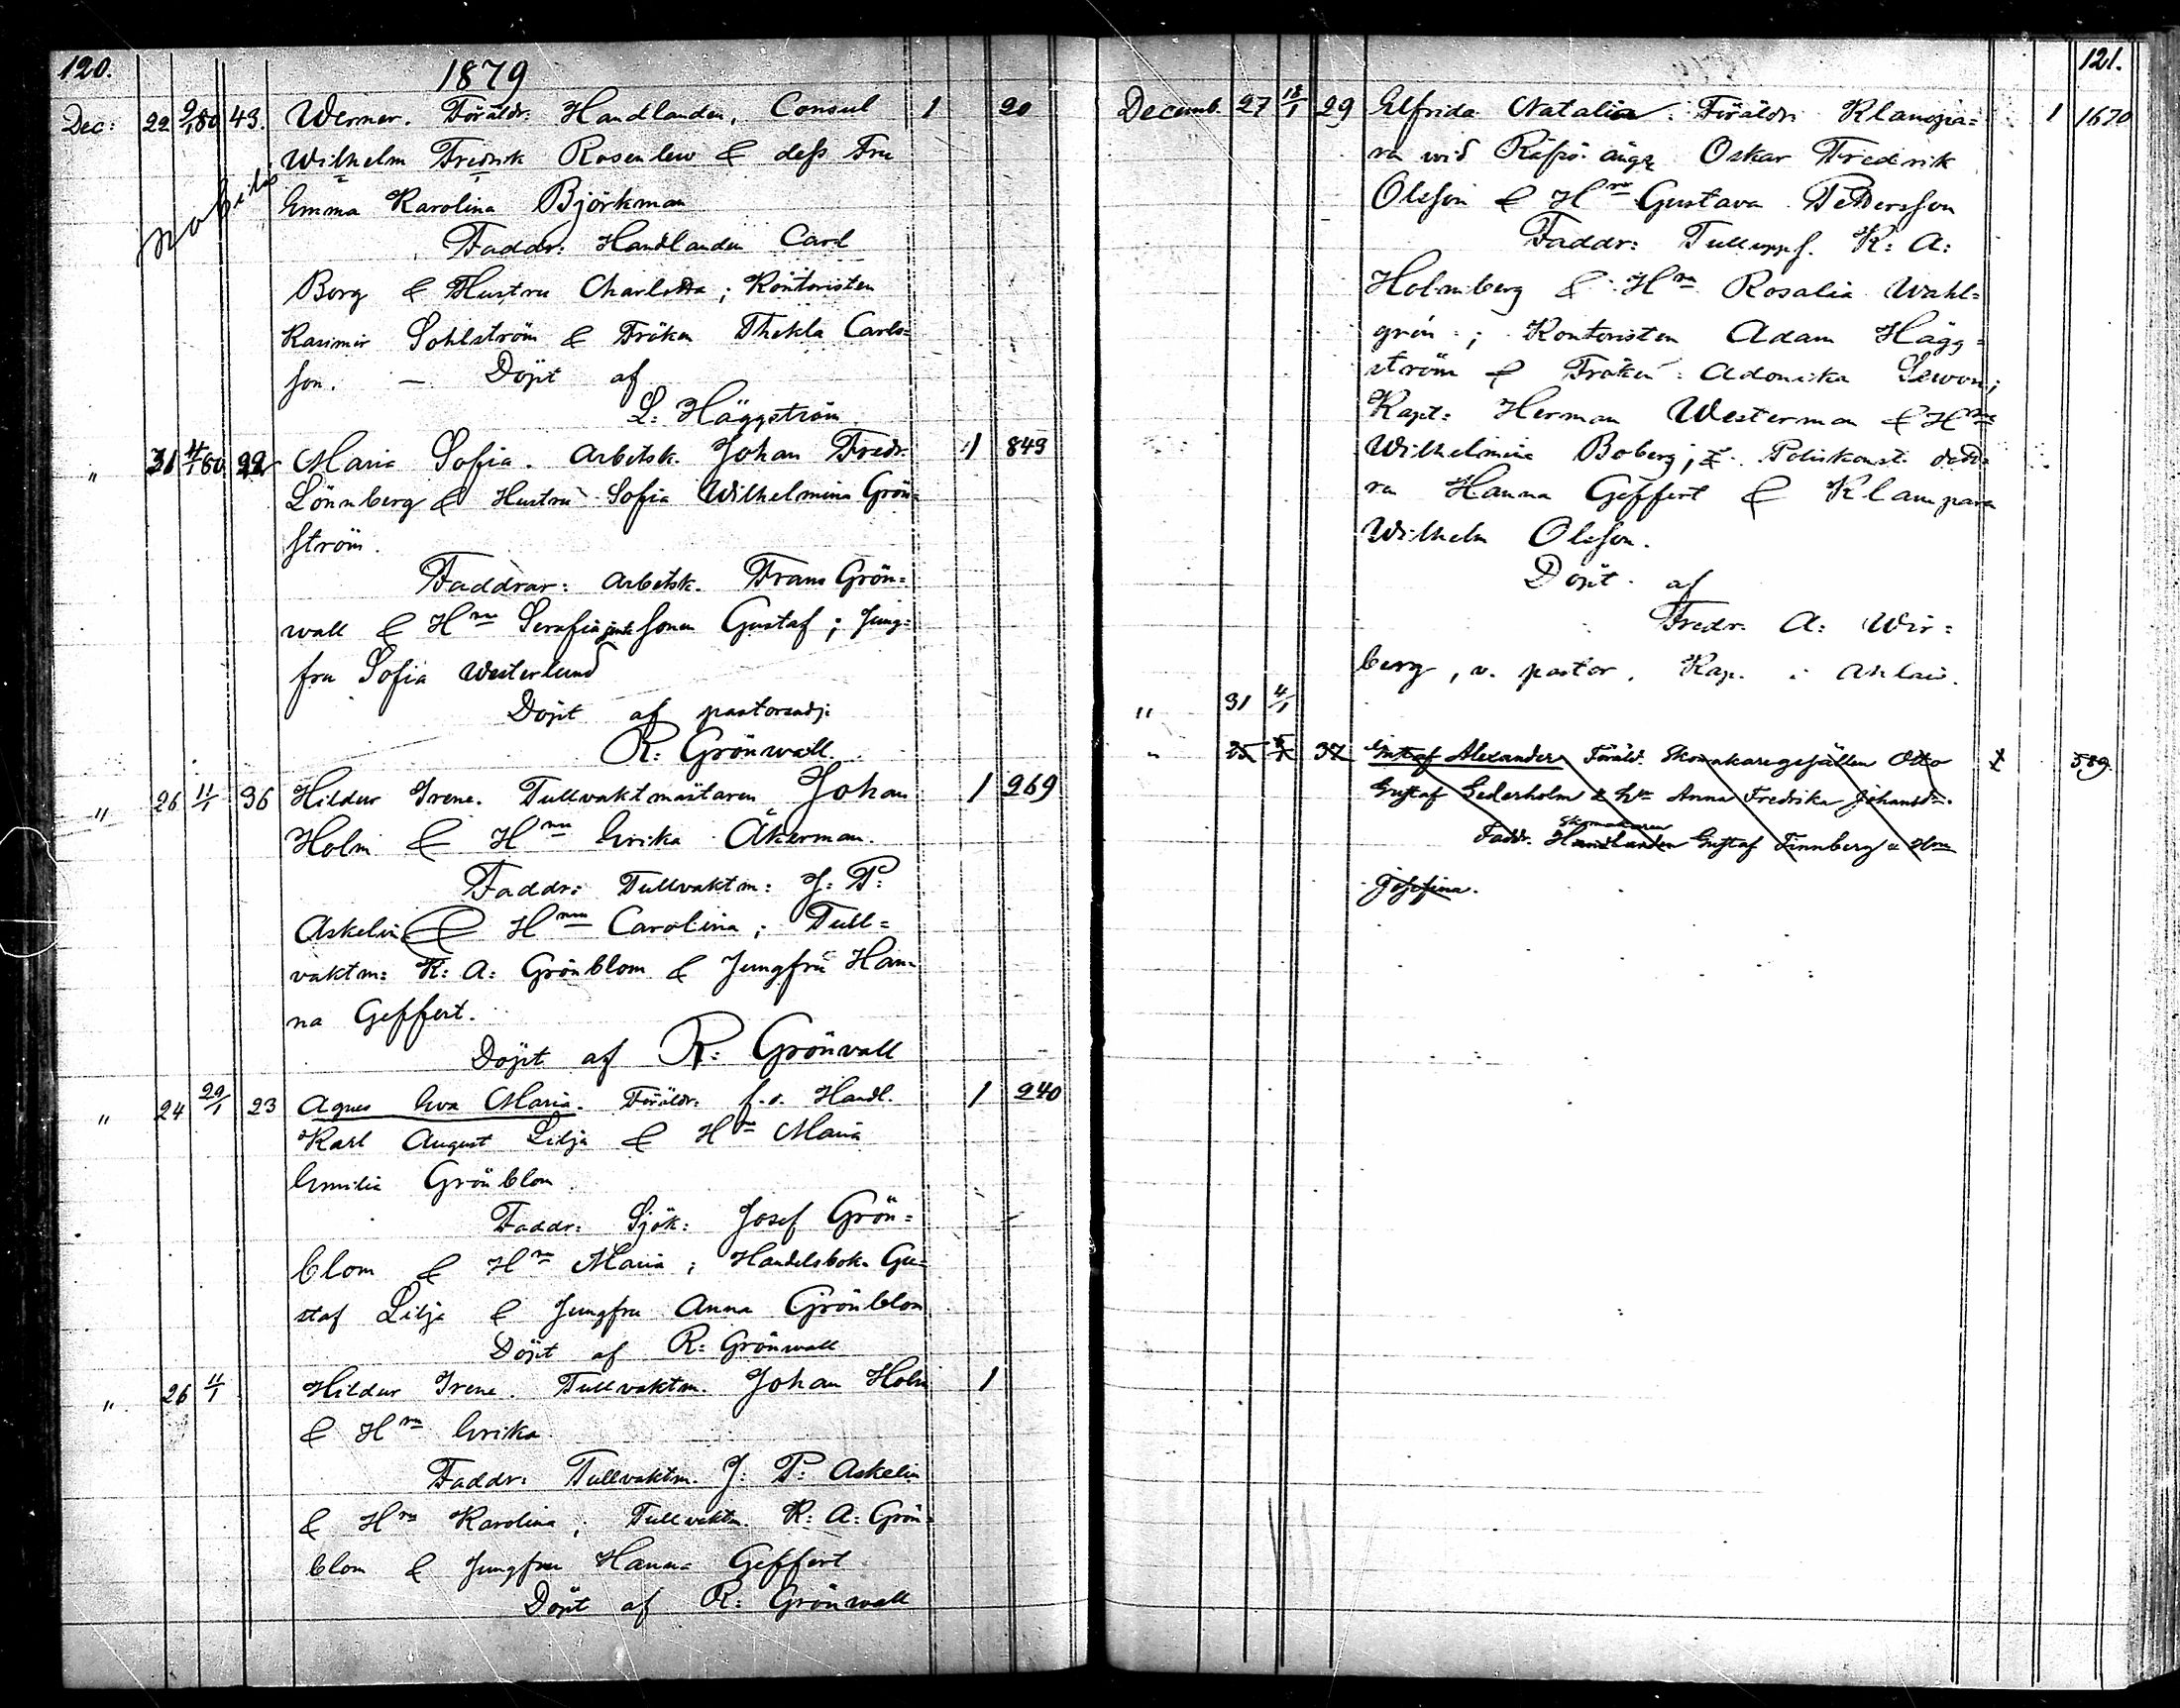 120.
1879
Dec: 22 9/1 80 43. Werner. Föräldr. Handlanden, Consul 1 20
Wilhelm Fredrik Rosenlew & dess Fru
Emma Karolina Björkman
Faddr: Handlanden Carl
Borg & Hustru Charlotta; Kontoristen
Kasimir Sohlström & Fröken Thekla Carls=
son. — Döpt af
L: Häggström
" 31 4/1 80 22 Maria Sofia. Arbetsk. Johan Fredr. 1 849
Lönnberg & Hustru Sofia Wilhelmina Grön=
ström.
Faddrar: Arbetsk. Frans Grön=
wall & Hru Serafia samt sonen Gustaf; Jung=
fru Sofia Westerlund
Döpt af pastorsadj:
R: Grönwall
" 26 11/1 36 Hildur Irene. Tullvaktmästaren Johan 1 969
Holm & Hru Erika Åkerman.
Faddr: Tullvaktm: J: P:
Askelin & Hru Carolina; Tull=
vaktm: K: A: Grönblom & Jungfru Han=
na Geffert.
Döpt af R: Grönvall
" 24 29/1 23 Agnes Eva Maria. Föräldr. f.d. Handl. 1 240
Karl August Lilja & Hu Maria
Emilia Grönblom.
Faddr: Sjök: Josef Grön=
blom & Hru Maria; Handelsbokh. Gu=
staf Lilja & Jungfru Anna Grönblom
Döpt af R: Grönwall
" 26 11/1 Hildur Irene. Tullvaktm. Johan Holm 1
& Hru Erika
Faddr: Tullvaktm. J: P: Askelin
& Hru Karolina; Tullvaktm. K: A: Grön=
blom & Jungfru Hanna Geffert
Döpt af R: Grönwall
121.
Decemb. 27 18/1 29 Elfrida Natalia. Föräldr: Klampa= 1 1670
re wid Räfsö ångs. Oskar Fredrik
Olsson & Hru Gustava Pettersson
Faddr: Tullupps. K: A:
Holmberg & Hru Rosalia Wahl=
grén; Kontoristen Adam Hägg=
ström & Fröken Adonika
Kapt: Herman Westerman & Hru
Wilhelmina Boberg; Poliskonst. dott=
ra Hanna Geffert & Klampare
Wilhelm Olsson.
Döpt af
Fredr. A: Wir=
berg, v. pastor, Kap. i Ahlais.
" 31 4/1
" 25 37 Gustaf Alexander Föräld. Skomakaregesällen Otto 1 589
Gustaf Cederholm & Hu Anna Fredrika Johansdr.
Skomakaren
Faddr. Handlanden Gustaf Finnberg & Hru
Josefina.